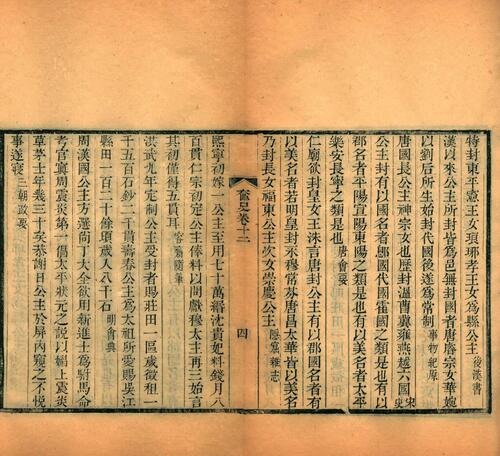 特封東平憲王女琅琊孝王女爲縣公主後漢書
漢以來公主所封皆爲邑無封國者唐睿宗女華婉
以劉后所生始封代國後遂爲常制事物紀原
唐國長公主神宗女也歷封溫曹冀雍燕越六國宋史
公主封有以國名者鄎國代國霍國之類是也有以
郡名者平陽宣陽東陽之類是也有以美名者太平
樂安長寧之類是也唐會要
仁廟欲封皇女王洙言唐封公主有以郡國名者有
以美名者若明皇封永穆常芬唐昌太華皆以美名
乃封長女福康公主次女崇慶公主隱窟雜志
奩史卷十二
四
熙寧初嫁一公主至用七十萬緡沈貴妃料錢月八
百貫仁宗初定公主俸料以問獻穆大主再三始言
其初僅得五貫耳容齋隨筆
洪武九年定制公主受封者賜莊田一區歲徵租一
千五百石鈔二千貫壽春公主爲太祖所愛賜吳江
縣田一百二十餘頃歲入八千石明會典
周漢國公主方選尚丁大全欲用新進士爲駙馬命
考官竇周震炎第一倡太平狀元之說以媚上震炎
草茅士年幾三十矣恭謝日公主於屏內窺之不悅
事遂寢三朝政要